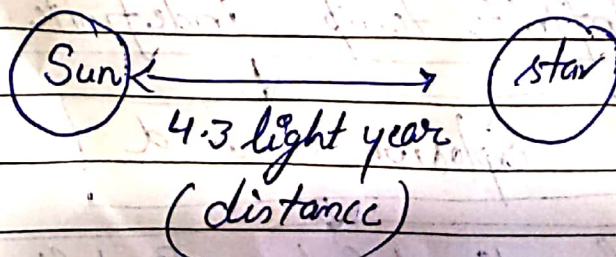 Sun star
4.3 light year
(distance)